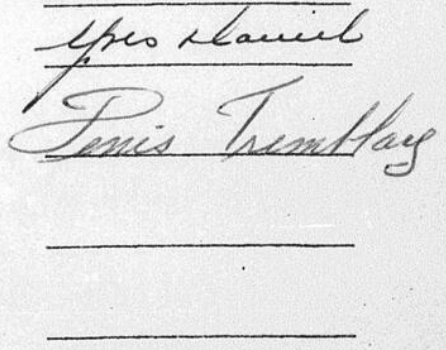 Yves Daniel
Denis Tremblay